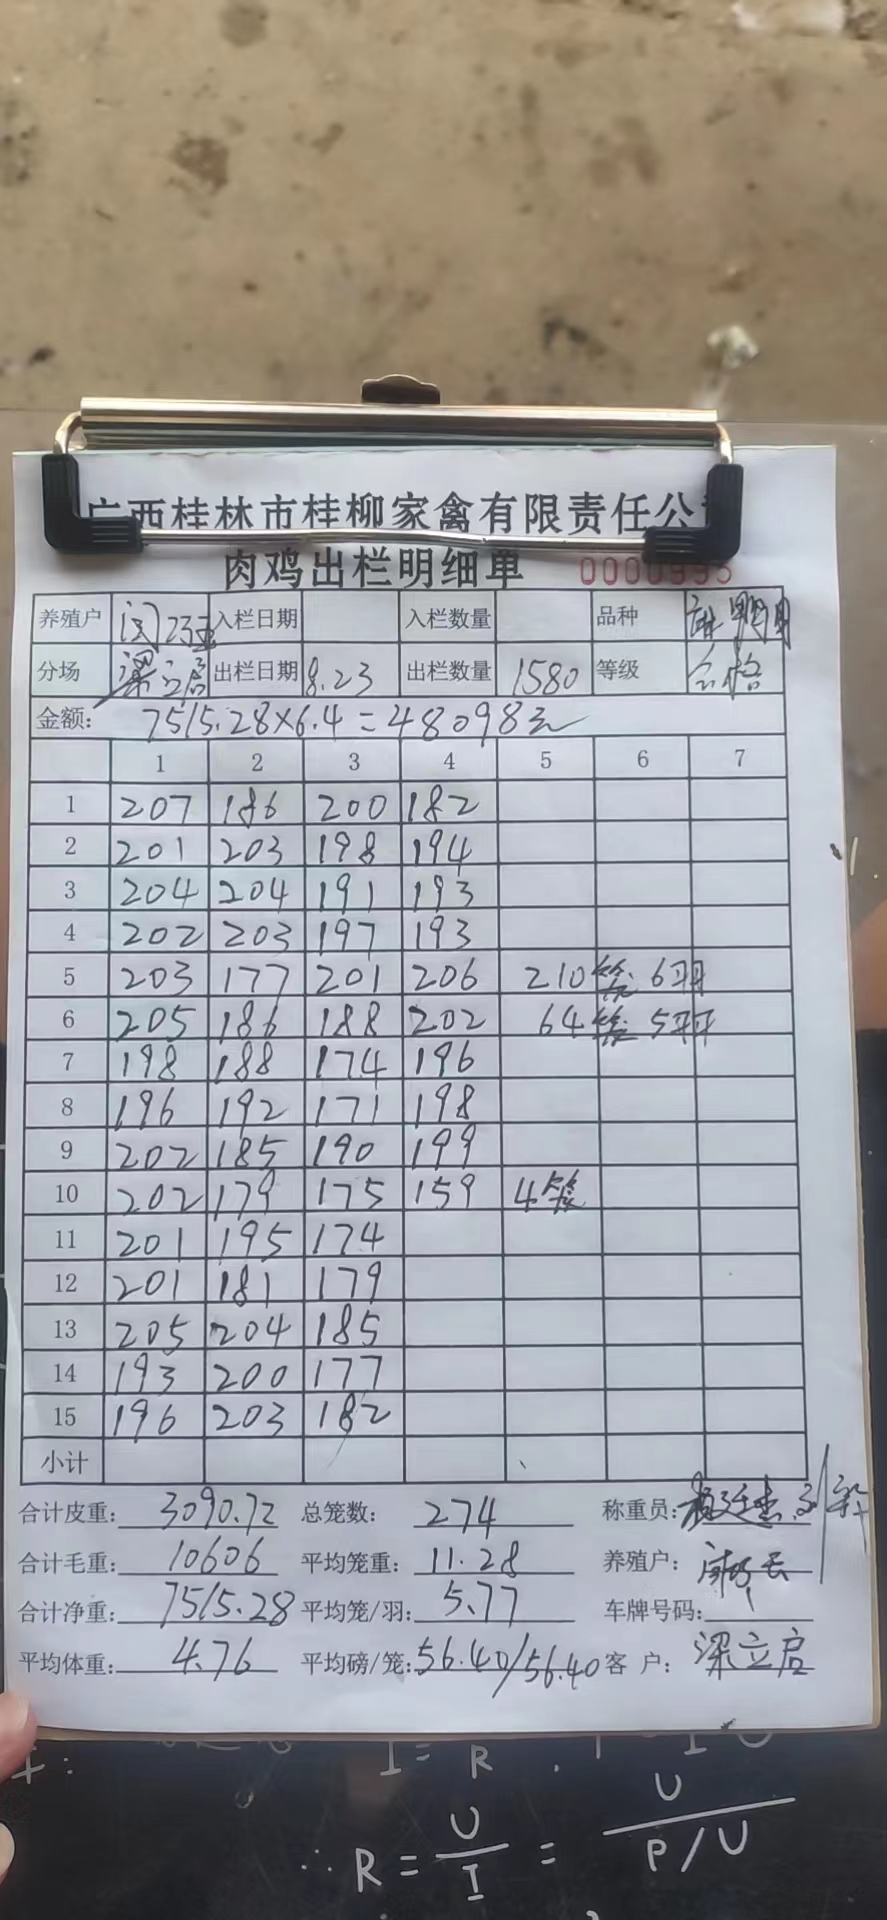 广西桂林市桂柳家禽有限责任公
肉鸡出栏明细单 0000995
养殖户 入栏日期 入栏数量 品种
分场 梁立启 出栏日期 8.23 出栏数量 1580 等级 合格
金额: 7515.28×6.4=48098元
1 2 3 4 5 6 7
1 207 186 200 182
2 201 203 198 194
3 204 204 191 193
4 202 203 197 193
5 203 177 201 206 210笼 6羽
6 205 186 188 202 64笼 5羽
7 198 188 174 196
8 196 192 171 198
9 202 185 190 199
10 202 179 175 159 4笼
11 201 195 174
12 201 181 179
13 205 204 185
14 193 200 177
15 196 203 182
小计
合计皮重: 3090.72 总笼数: 274 称重员:
合计毛重: 10606 平均笼重: 11.28 养殖户:
合计净重: 7515.28 平均笼/羽: 5.77 车牌号码:
平均体重: 4.76 平均磅/笼: 56.40/56.40 客 户: 梁立启
∴ R = U/I = U/P/U